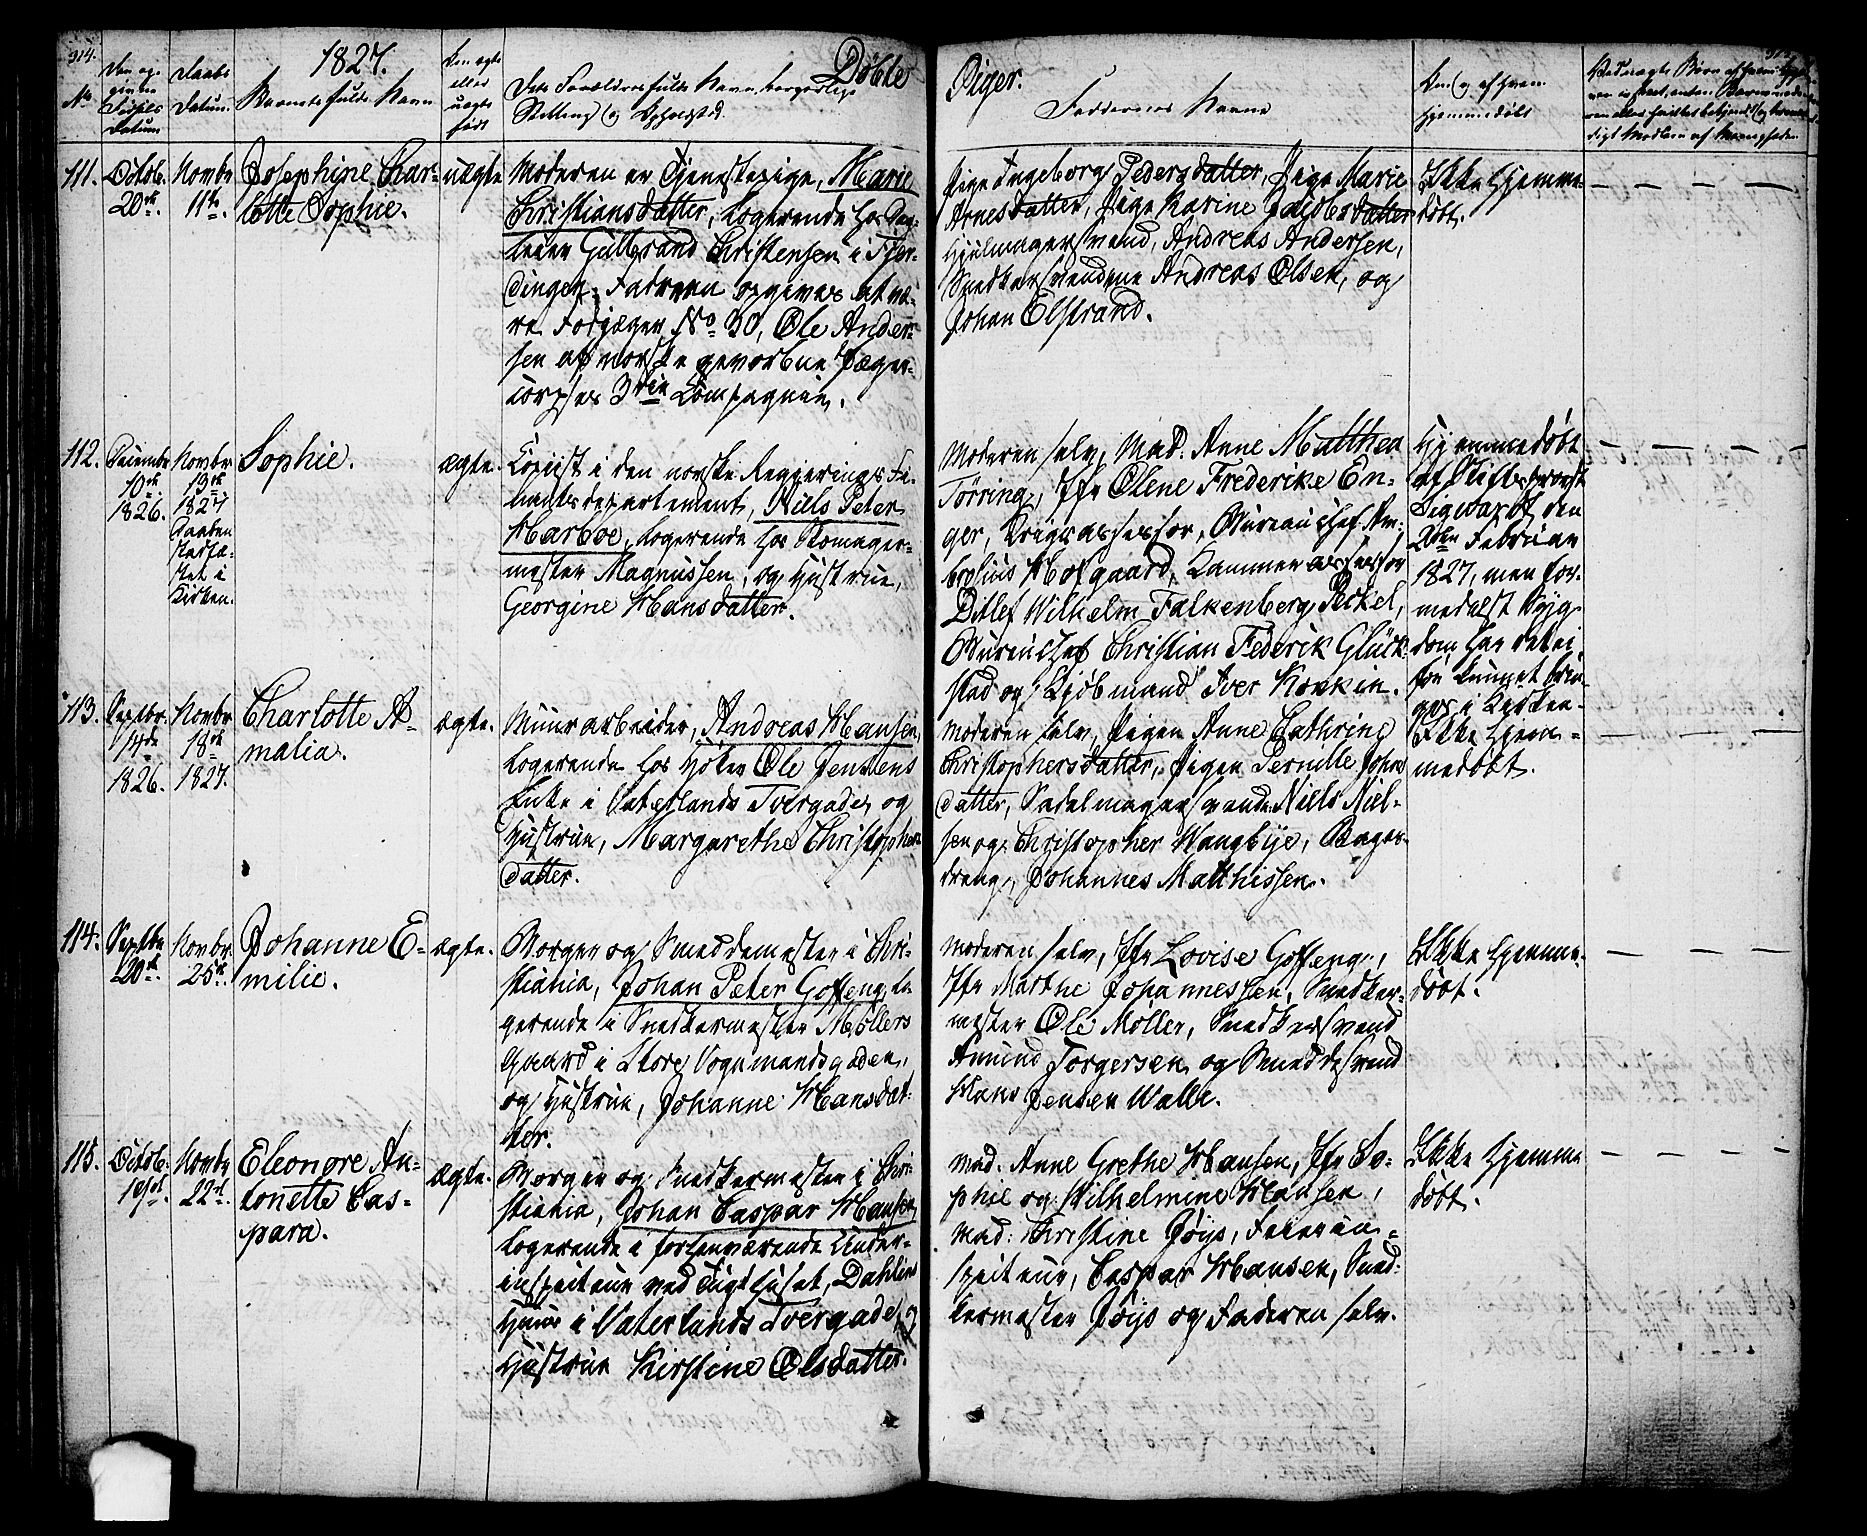 314.
1827.
Døbte
Piger.
No
Daabs
Datum
Barnets fulde Navn
Den ægte
eller
uægte
født
Dets Forældres fulde Navn, borgerlige
Stilling og Opholdsted.
Faddernes Navne
111.
Octob.
20de
Novbr
11te
Josephine Char-
lotte Sophie.
uægte
Moderen er Tjenestepige, Marie
Christiansdatter, logerende hos Dag-
leier Gulbrand Christensen i Fjer-
dingen. Faderen opgives at væ-
re Fodjæger No 30, Ole Ander-
sen af norske gevorbne Jæger-
corpses 3die Compagnie.
Pige Ingeborg Pedersdatter, Pige Marie
Arnesdatter, Pige Karine Jacobsdatter
Hjulmagersvend, Andreas Andersen,
Snedkersvendene Andreas Olsen, og
Johan Elstrand.
Ikke hjemme-
døbt.
112.
Decembr
10de
1826.
Novbr
19de
1827
Daaben
stadfæ-
stet i
Kirken.
Sophie.
ægte.
Copiist i den norske Regjerings Fi-
nantsdepartement, Niels Peter
Harboe, logerende hos Skomager-
mester Magnussen, og Hustrue,
Georgine Hansdatter.
Moderen selv, Mad. Anne Matthea
Tørring, Jfr Olene Frederike En-
ger, Krigsassessor, Bureauchef Am-
brosius Hofgaard, Kammerassessor
Ditlef Wilhelm Falkenberg Peckel,
Bureuchef Christian Federik Glück-
stad og Kjøbmand Iver Konkin.
Hjemmedøbt
af Stiftsprovst
Sigwardt den
2den Februar
1827, men for-
medelst Syg-
dom har det ei
før kunnet brin-
ges i Kirken.
113.
Septbr.
14de
1826.
Novbr
18de
1827.
Charlotte A-
malia.
ægte.
Muurarbeider, Andreas Hansen,
logerende hos Høker Ole Jensens
Enke i Vaterlands Tvergade, og
Hustrue, Margarethe Christophers-
datter.
Moderen selv, Pigen Anne Cathrine
Christophersdatter, Pigen Pernille Johns
datter, Sadelmagersvende Niels Niel-
sen og Christopher Wangbye, Bager-
dreng, Johannes Matthissen.
Ikke hjem-
medøbt.
114.
Septbr
20de
Novbr.
25de
Johanne E-
milie.
ægte.
Borger og Smeddemester i Chri-
stiania, Johan Peter Goffeng, lo-
gerende i Snedkermester Møllers
Gaard i Store Vognmandsgaden,
og Hustrue, Johanne Hansdat-
ter.
Moderen selv, Jfr Lovise Goffeng,
Jfr Marthe Johannessen, Snedker-
mester Ole Møller, Snedkersvend
Amund Torgersen og Smeddesvend
Hans Jensen Walle.
Ikke hjemme-
døbt.
115.
Octob.
Novbr
22de
Eleonore An-
tonette Cas-
para.
ægte.
Borger og Snedkermester i Chri-
stiania, Johan Caspar Hansen,
logerende i forhenværende Under-
inspecteur ved Tugthuset, Dahlins
Huus i Vaterlands Tvergade, og
Hustrue Kirstine Olsdatter.
Mad. Anne Grethe Hansen, Jfr So-
phie og Wilhelmine Hansen,
Mad: Christine Jøys, Feierin-
specteur, Caspar Hansen, Sned-
kermester Jøys og Faderen selv.
Ikke hjemme
døbt.